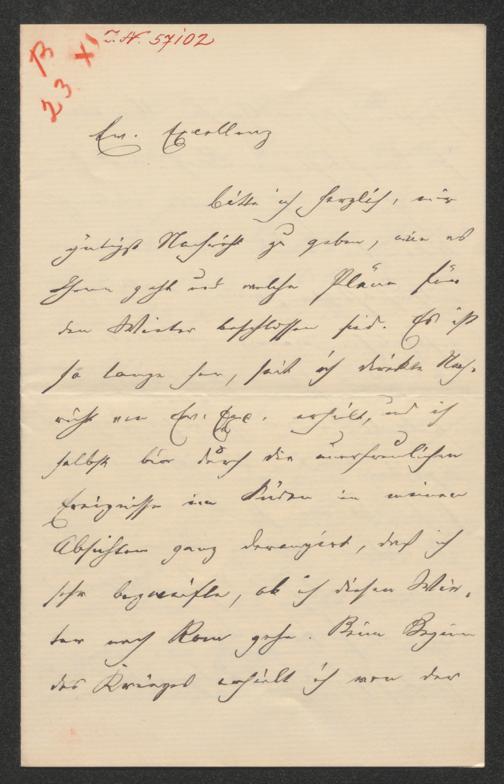 B
23 XI
I.N. 57102
Ew. Excellenz
bitte ich herzlich, mir
gütigst Nachricht zu geben, wie es
Ihnen geht und welche Pläne für
den Winter beschlossen sind. Es ist
so lange her, seit ich direkte Nach-
richt von Ew. Exc. erhielt, und ich
selbst bin durch die unerfreulichen
Ereignisse im Süden in meinen
Absichten ganz derangirt, daß ich
sehr bezweifle, ob ich diesen Win-
ter nach Rom gehe. Beim Beginn
des Krieges erhielt ich von der